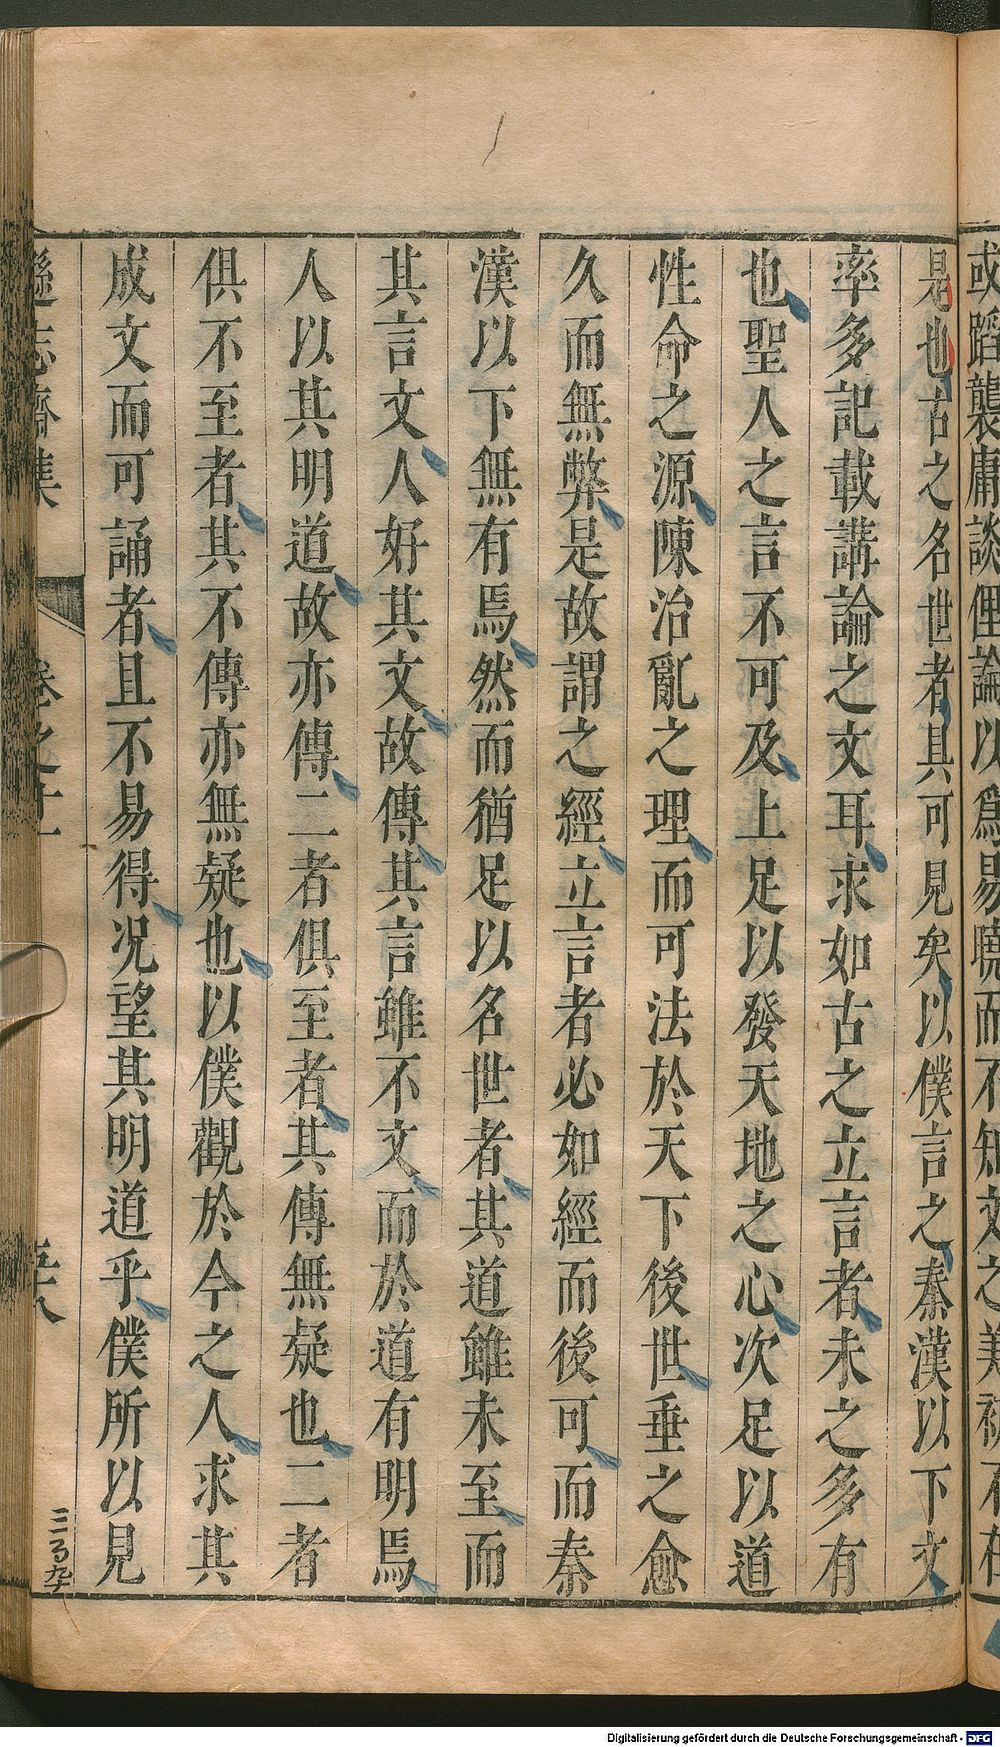 或蹈襲庸談俚論以爲易曉而不知文之美
是也古之名世者具可見矣以僕言之秦漢以下文
率多記載講論之文耳求如古之立言者未之多有
也聖人之言不可及上足以發天地之心次足以道
性命之源陳治亂之理而可法於天下後世垂之愈
久而無弊是故謂之經立言者必如經而後可而秦
漢以下無有焉然而猶足以名世者其道雖未至而
其言文人好其文故傳其言雖不文而於道有明焉
人以其明道故亦傳二者俱至者其傳無疑也二者
俱不至者其不傳亦無疑也以僕觀於今之人求其
成文而可誦者且不易得況望其明道乎僕所以見
遜志齋集 卷之十一
三百九十
Digitalisierung gefördert durch die Deutsche Forschungsgemeinschaft - DFG